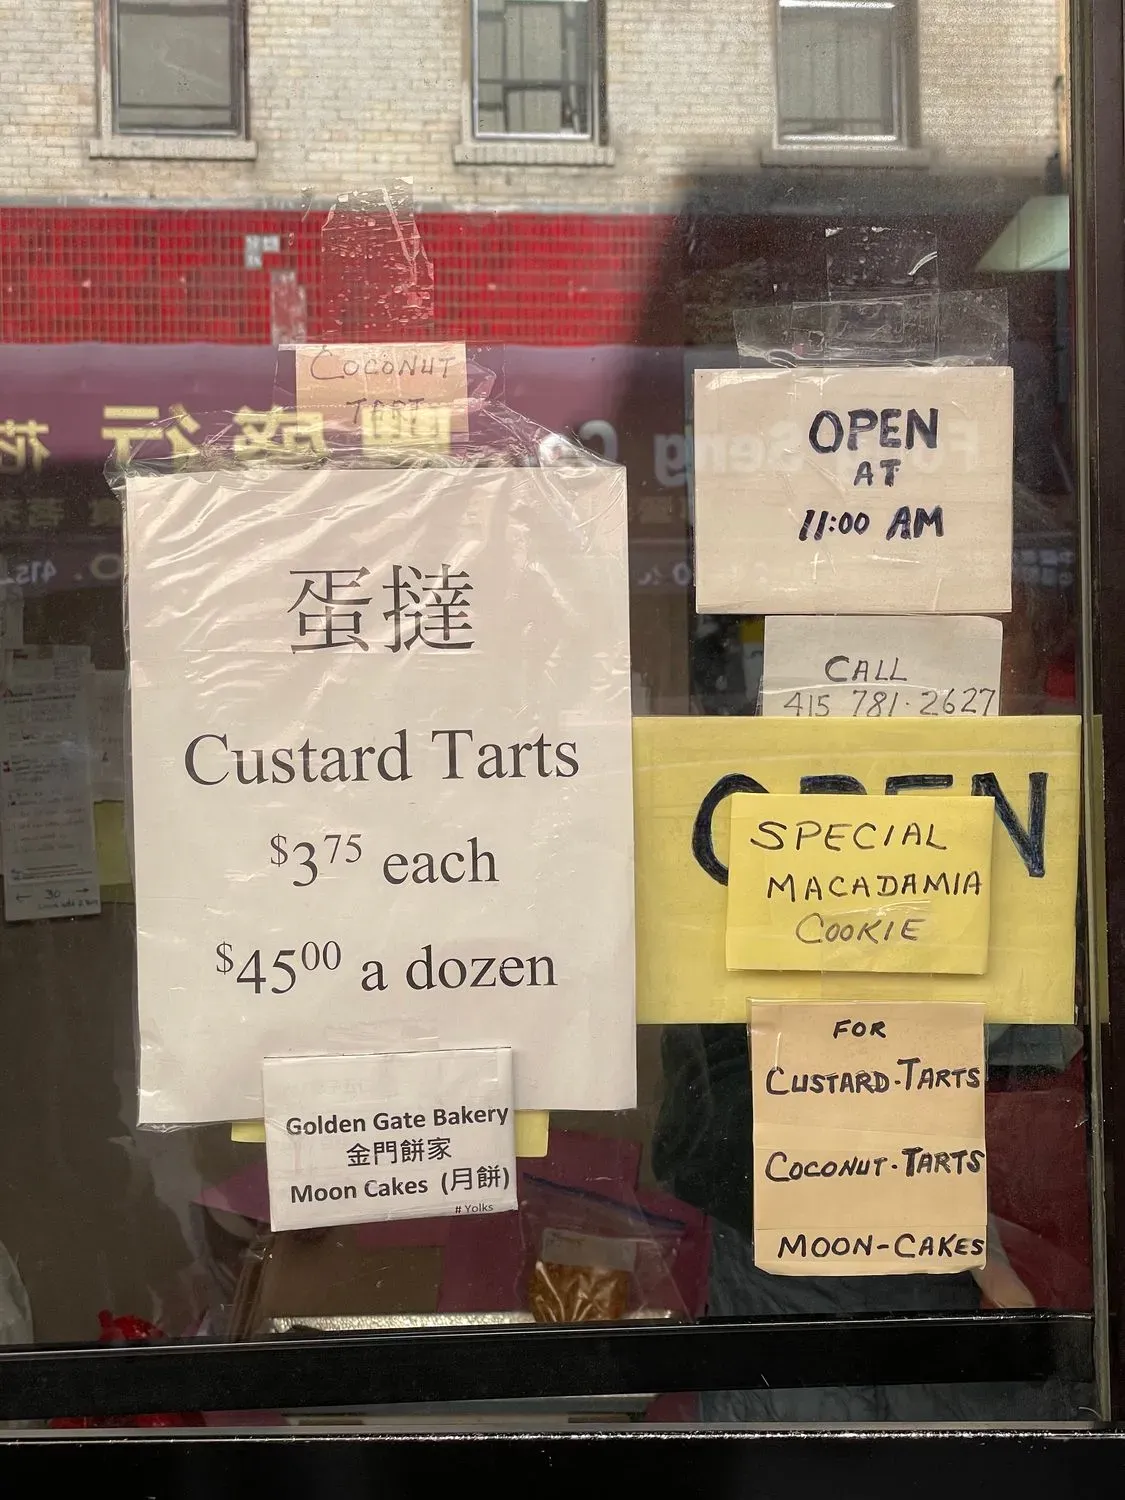 COCONUT
TART
蛋撻
Custard Tarts
$3.75 each
$45.00 a dozen
Golden Gate Bakery
金門餅家
Moon Cakes (月餅)
# Yolks
OPEN
AT
11:00 AM
CALL
415 781-2627
OPEN
SPECIAL
MACADAMIA
COOKIE
FOR
CUSTARD-TARTS
COCONUT-TARTS
MOON-CAKES